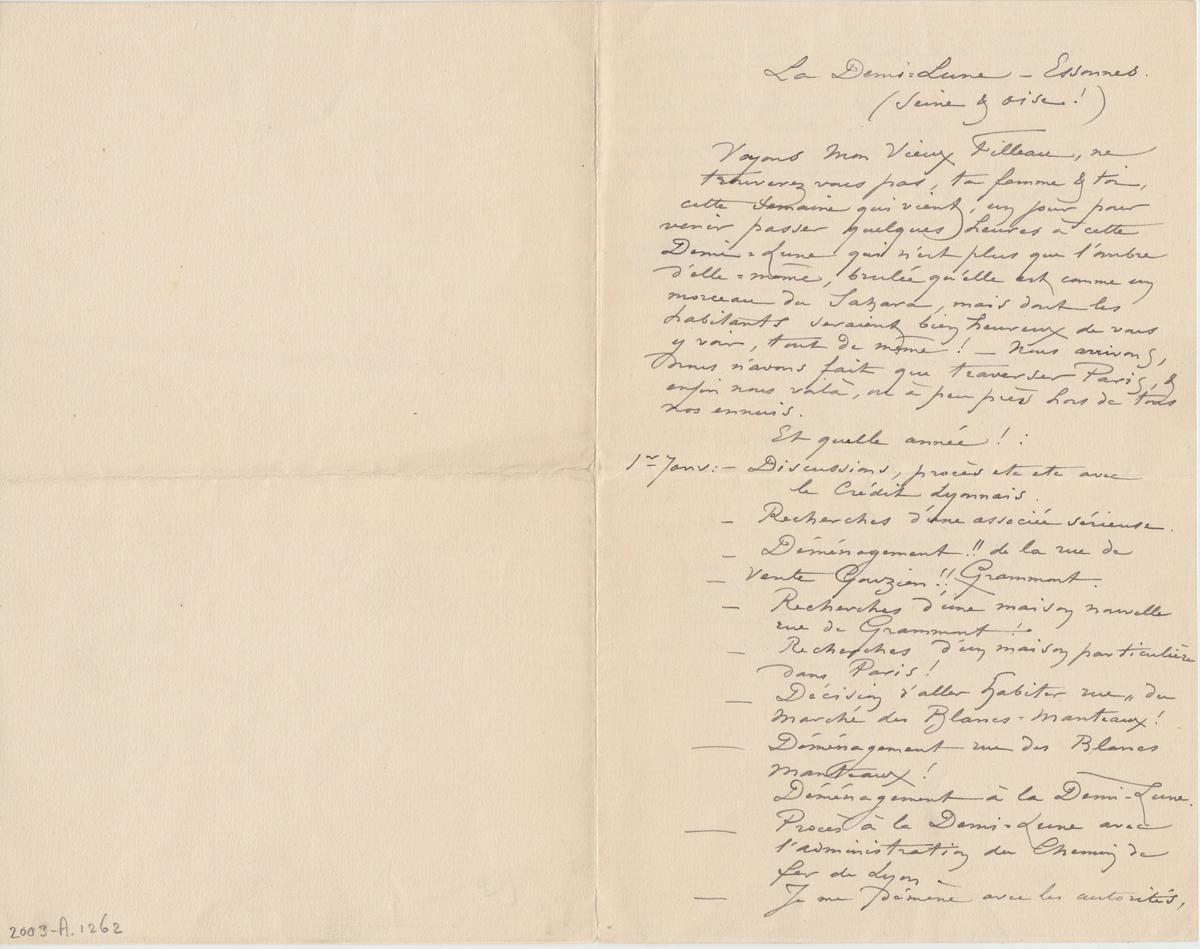 La Demi=Lune – Essonnes.
(Seine & Oise!)
Voyons Mon Vieux Filleau, ne
trouverez vous pas, ta femme & toi,
cette semaine qui vient, un jour pour
venir passer quelques heures à cette
Demi=Lune qui n'est plus que l'ombre
d'elle=même, brulée qu'elle est comme un
morceau du Sahara, mais dont les
habitants seraient bien heureux de vous
y voir, tout de même! – Nous arrivons,
nous n'avons fait que traverser Paris, &
enfin nous voilà, ou à peu près hors de tous
nos ennuis.
Et quelle année!:
1er Janv: – Discussions, procès etc etc avec
le Crédit Lyonnais.
– Recherches d'une associée sérieuse.
– Déménagement!! de la rue de
Grammont.
– Vente Gouzien!!
– Recherches d'une maison nouvelle
rue de Grammont!
– Recherches d'un maison particulière
dans Paris!
– Décision d'aller habiter rue du
Marché des Blancs-Manteaux!
– Déménagement rue des Blancs
Manteaux!
Déménagement à la Demi-Lune.
– Procès à la Demi=Lune avec
l'administration du Chemin de
fer de Lyon.
– Je me démène avec les autorités,
2003-A.1262